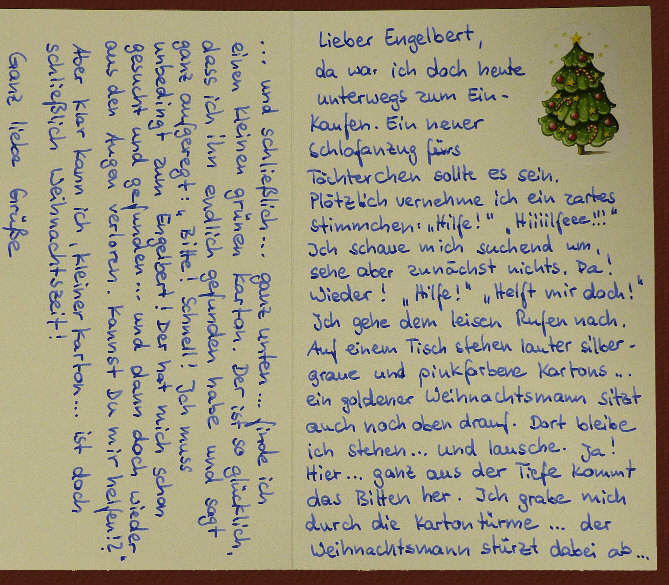 Lieber Engelbert,
da war ich doch heute
unterwegs zum Ein-
kaufen. Ein neuer
Schlafanzug fürs
Töchterchen sollte es sein.
Plötzlich vernehme ich ein zartes
Stimmchen: „Hilfe!" „Hiiiilfeee!!!"
Ich schaue mich suchend um,
sehe aber zunächst nichts. Da!
Wieder! „Hilfe!" „Helft mir doch!"
Ich gehe dem leisen Rufen nach.
Auf einem Tisch stehen lauter silber-
graue und pinkfarbene Kartons...
ein goldener Weihnachtsmann sitzt
auch noch oben drauf. Dort bleibe
ich stehen... und lausche. Ja!
Hier... ganz aus der Tiefe kommt
das Bitten her. Ich grabe mich
durch die Kartontürme... der
Weihnachtsmann stürzt dabei ab...
... und schließlich... ganz unten... finde ich
einen kleinen grünen Karton. Der ist so glücklich,
dass ich ihn endlich gefunden habe und sagt
ganz aufgeregt: „Bitte! Schnell! Ich muss
unbedingt zum Engelbert! Der hat mich schon
gesucht und gefunden... und dann doch wieder
aus den Augen verloren. Kannst Du mir helfen!?"
Aber klar kann ich, kleiner Karton... ist doch
schließlich Weihnachtszeit!
Ganz liebe Grüße